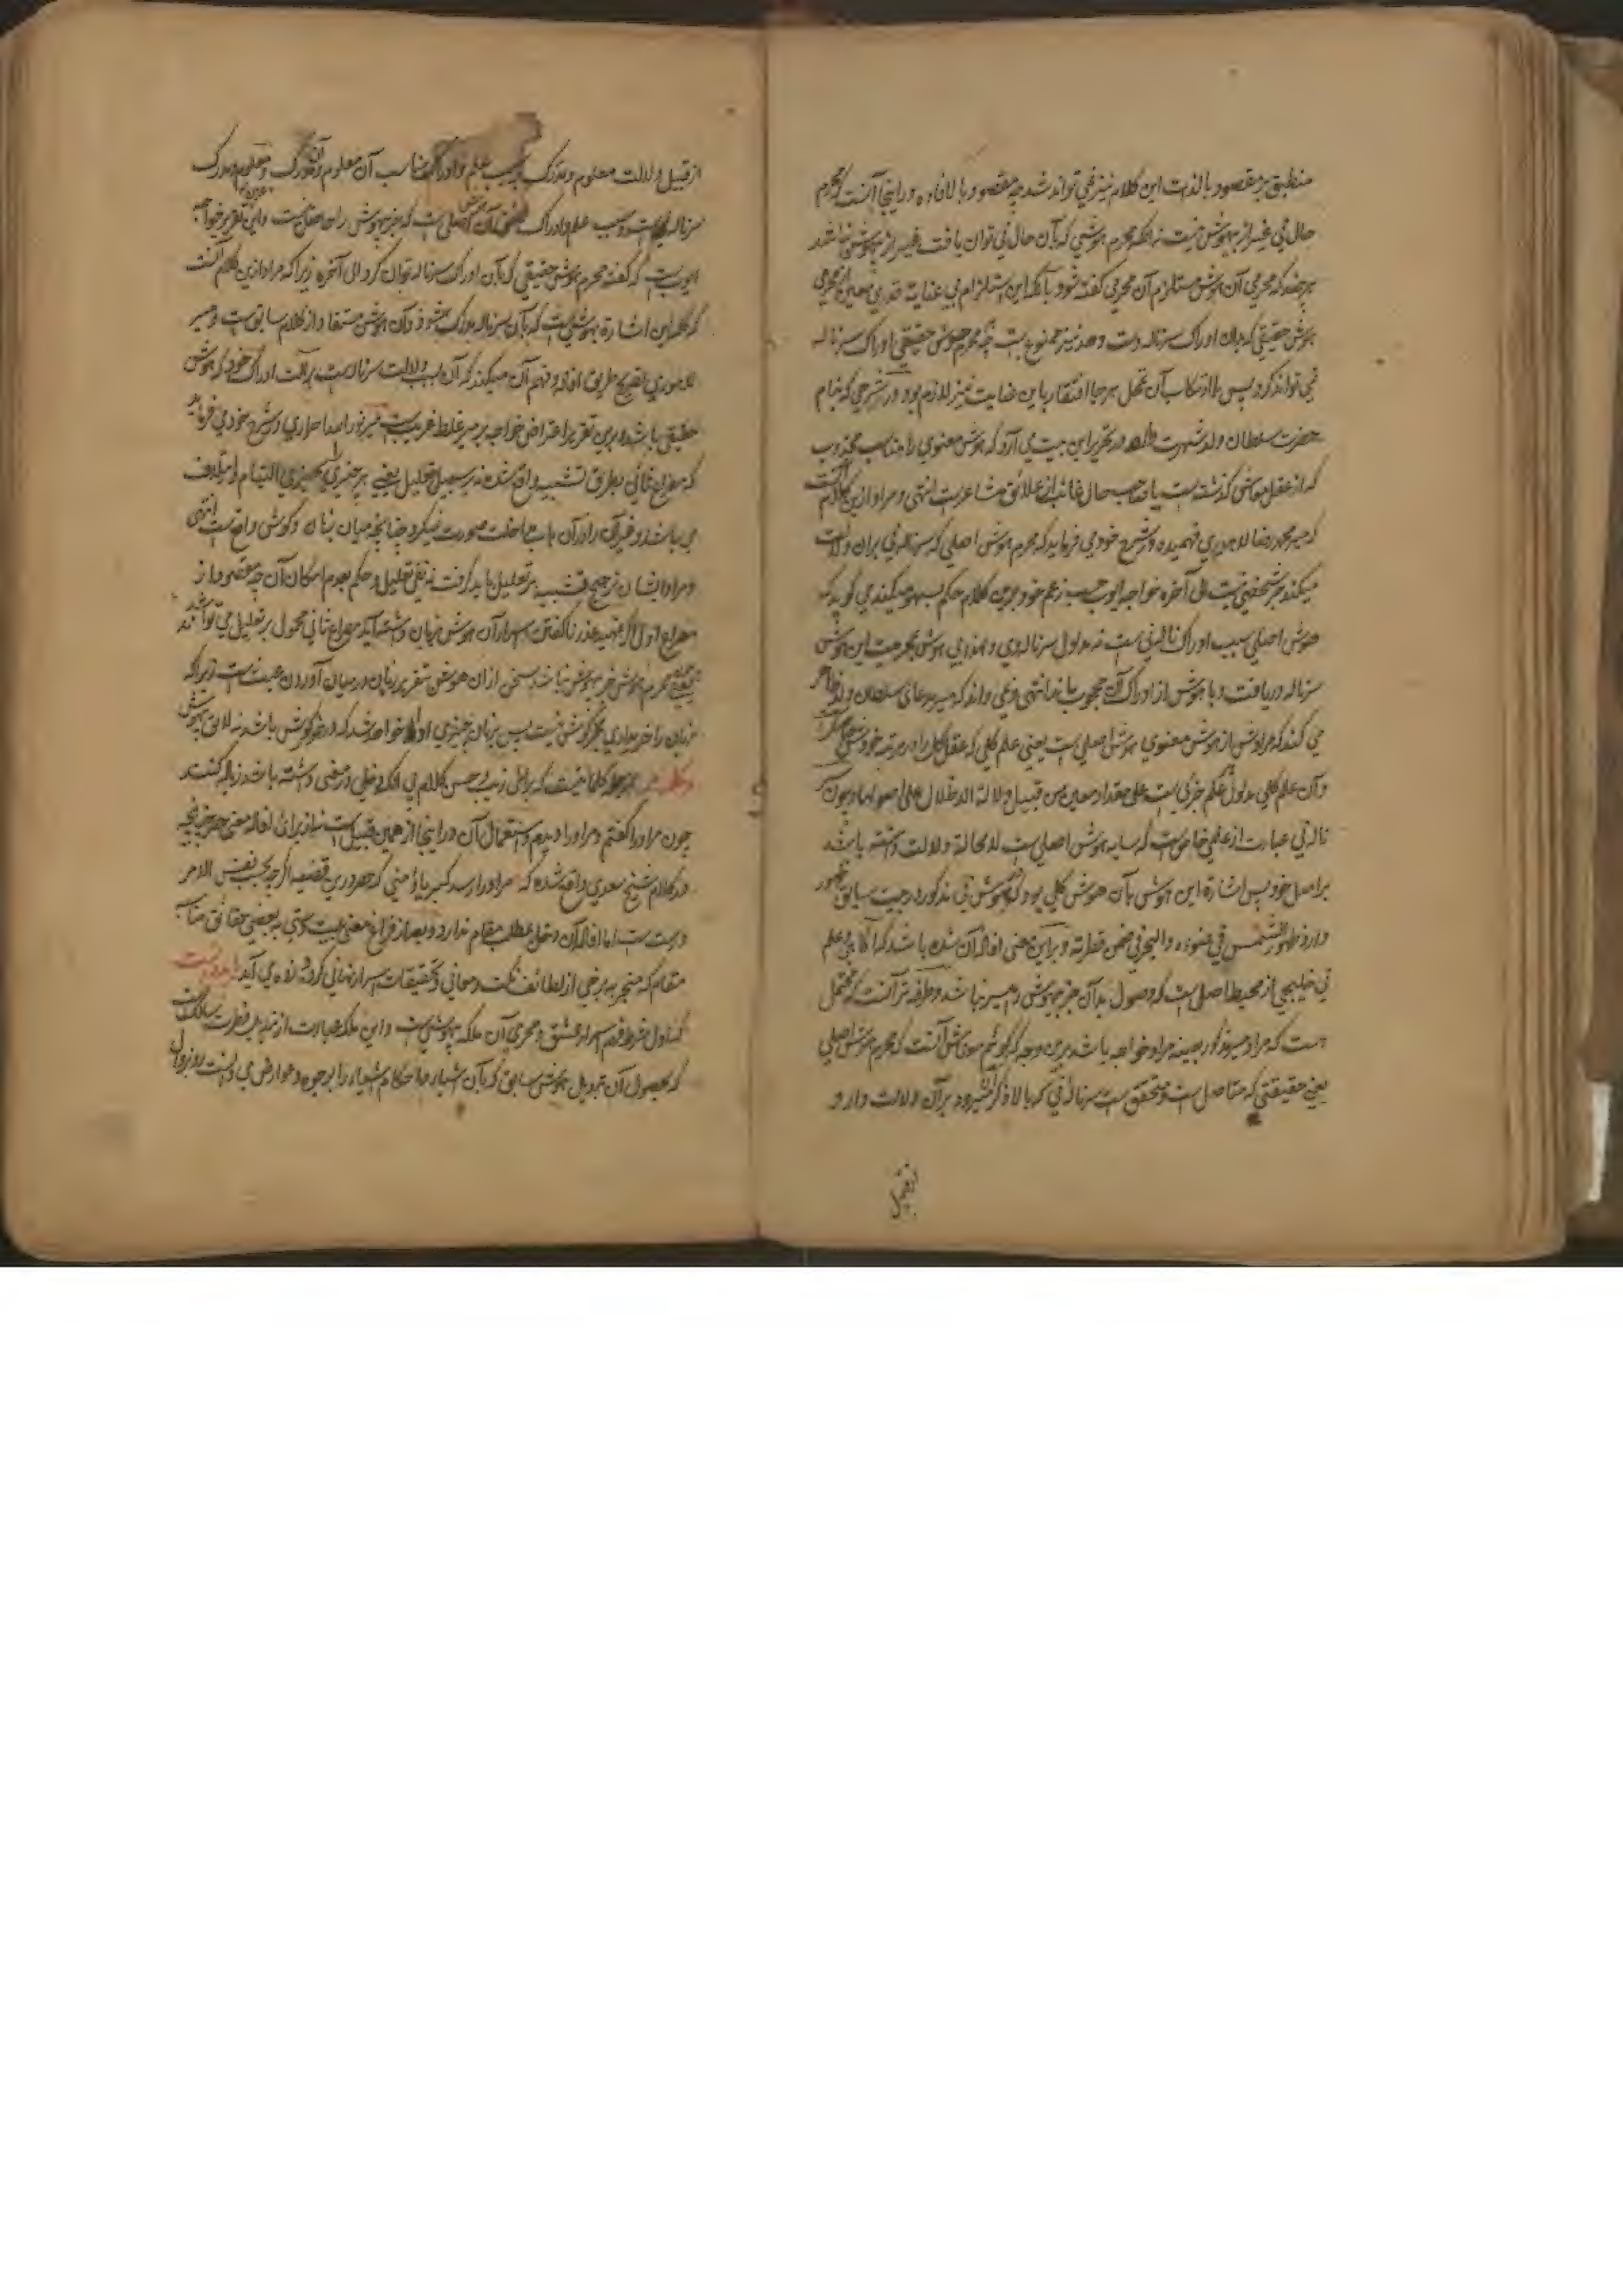 منطبق بر مقصود بالذات این کلام نیز نمی تواند شد چه مقصود بالافاده در اینجا آنست که محرم
حال نی غیر از بیهوش نیست نه آنکه محرم هوشی که بآن حال نی توان یافت غیر از بیهوش نباشد
هر چند که محرمی آن هوش مستلزم آن محرمی گفته شود با آنکه این استلزام بی عنایة قدری معین از محرمی
هوش حقیقی که بدان ادراک سر ناله دست دهد نیز ممنوع است چه محرم هوش حقیقی ادراک سر ناله
نمی تواند کرد پس با ارتکاب آن تمحل هر جا افتقار باین عنایت نیز لازم بود در شرحی که بنام
حضرت سلطان ولد شهرت دارد در تحریر این بیت می آرد که هوش معنوی را مناسب مجذوب
که از عقل معاشی گذشته است یا صاحب حال غائب از علائق مشاعرست انتهی و مراد ازین کلام آنست
که میر محمد رضا لاهوری فهمیده در شرح خود می فرماید که محرم هوش اصلی که سر ناله نی بران دلالت
میکند جز شخصی نیست الی آخره خواجه ایوب حسب زعم خود برین کلام حکم بسهو میکند می گوید که
هوش اصلی سبب ادراک ناله نی است نه مدلول سر ناله وی و لهذا بی هوش بمحرمیت این هوش
سر ناله دریافت و با هوش از ادراک آن محجوب ماند انتهی و نمی داند که میر مدعای سلطان ولد ظاهر
می کند که مرادش از هوش معنوی هوش اصلی است یعنی علم کلی که عقل کل را در مرتبه خودش حاصل است
و آن علم کلی مدلول علم جزئی است علی مقدار معین من قبیل دلالة الاظلال علی اصولها و چون
ناله نی عبارت از علمی خاص است که سایه هوش اصلی است لا محالة دلالت داشته باشد
بر اصل خود پس اشارهٔ این هوش بآن هوش کلی بود که هوش نی مذکور در بیت سابق ظهور
دارد ظهور الشمس فی ضوءه والبحر فی ضمن قطرته و برای این معنی افاده آن شده باشد که آگاهی علم
نی خلیجی از محیط اصل است که وصول بدان جز بیهوش را میسر نباشد و طرفه تر آنست که محتمل
است که مراد میر مذکور بعینه مراد خواجه باشد برین وجه که گوئیم معنیش آنست که محرم هوش اصلی
یعنی حقیقتی که متاصل است و متحقق است سر ناله نی که بالا ذکر شد برآن دلالت دارد
از قبیل
از قبیل دلالت معلوم و مدرک بر سبب علم و ادراک مناسب آن معلوم و آن مدرک و معلوم و مدرک
سر ناله نی است و سبب علم و ادراک آن اصلی است که جز بیهوش را حاصل نیست و این تقریر خواجه
ایوب است که گفته محرم هوش حقیقی که بآن ادراک سر ناله توان کرد الی آخره زیرا که مراد ازین کلام آنست
که کلمه این اشاره بهوشی است که بآن سر ناله مدرک میشود و آن هوش مستفاد از کلام سابق است و میر
لاهوری تصریح طریق افاده و فهم آن میکند که آن سبب دلالت سر ناله است بر آلت ادراک خود که هوش
حقیقی باشد و برین تقریر اعتراض خواجه بر میر غلط غریب است میر نورالله احراری در شرح خود می فرماید
که مصراع ثانی بطریق تشبیه واقع شده نه بر سبیل تعلیل یعنی هر چیزی را بچیزی التیام و ایتلاف
می باشد و غیر آن را در آن باب مداخلت صورت نگیرد چنانچه میان زبان و گوش واقع است انتهی
و مراد ایشان ترجیح تشبیه بر تعلیل باید گرفت نه نفی تعلیل و حکم بعدم امکان آن چه مقصود از
مصراع اول اگر تمهید عذر ناگفتن اسرار آن هوش بزبان داشته آید مصراع ثانی محمول بر تعلیل می تواند شد
یعنی محرم هوش جز بیهوش نباشد سخن ازان هوش بتقریر زبان درمیان آوردن عبث است زیرا که
زبان را خریداری بجز گوش نیست پس بزبان چیزی ادا خواهد شد که درخور گوش باشد نه لائق بیهوش
و کلمه مر از جمله کلماتیست که برای زیب و حسن کلام بی آنکه دخلی در معنی داشته باشد زیاده کنند
چون مر او را گفتم و مر او را دیدم و استعمال آن در اینجا از همین قبیل است نه از برای افادهٔ معنی حصر چنانچه
در کلام شیخ سعدی واقع شده که مر او را رسد کبریا و منی که حصر درین قضیه اگر چه بحسب نفس الامر
درست است اما افاده آن دخل بمطلب مقام ندارد و بعد از فراغ معنی بیت دستی به بعضی حقائق مناسب
مقام که منجر به برخی از لطائف نکات و معانی و تحقیقات اسرار نهانی کرده زده می آید
که اول شرط فهم اسرار عشق و محرمی آن ملکه بیهوشی است و این ملکه عبارت از تبدیل فطرت سالک است
که بحصول آن تبدیل هوش سابق که بآن اشیا و احکام اشیا را بر وجوه و عوارض می دانست رو بزوال